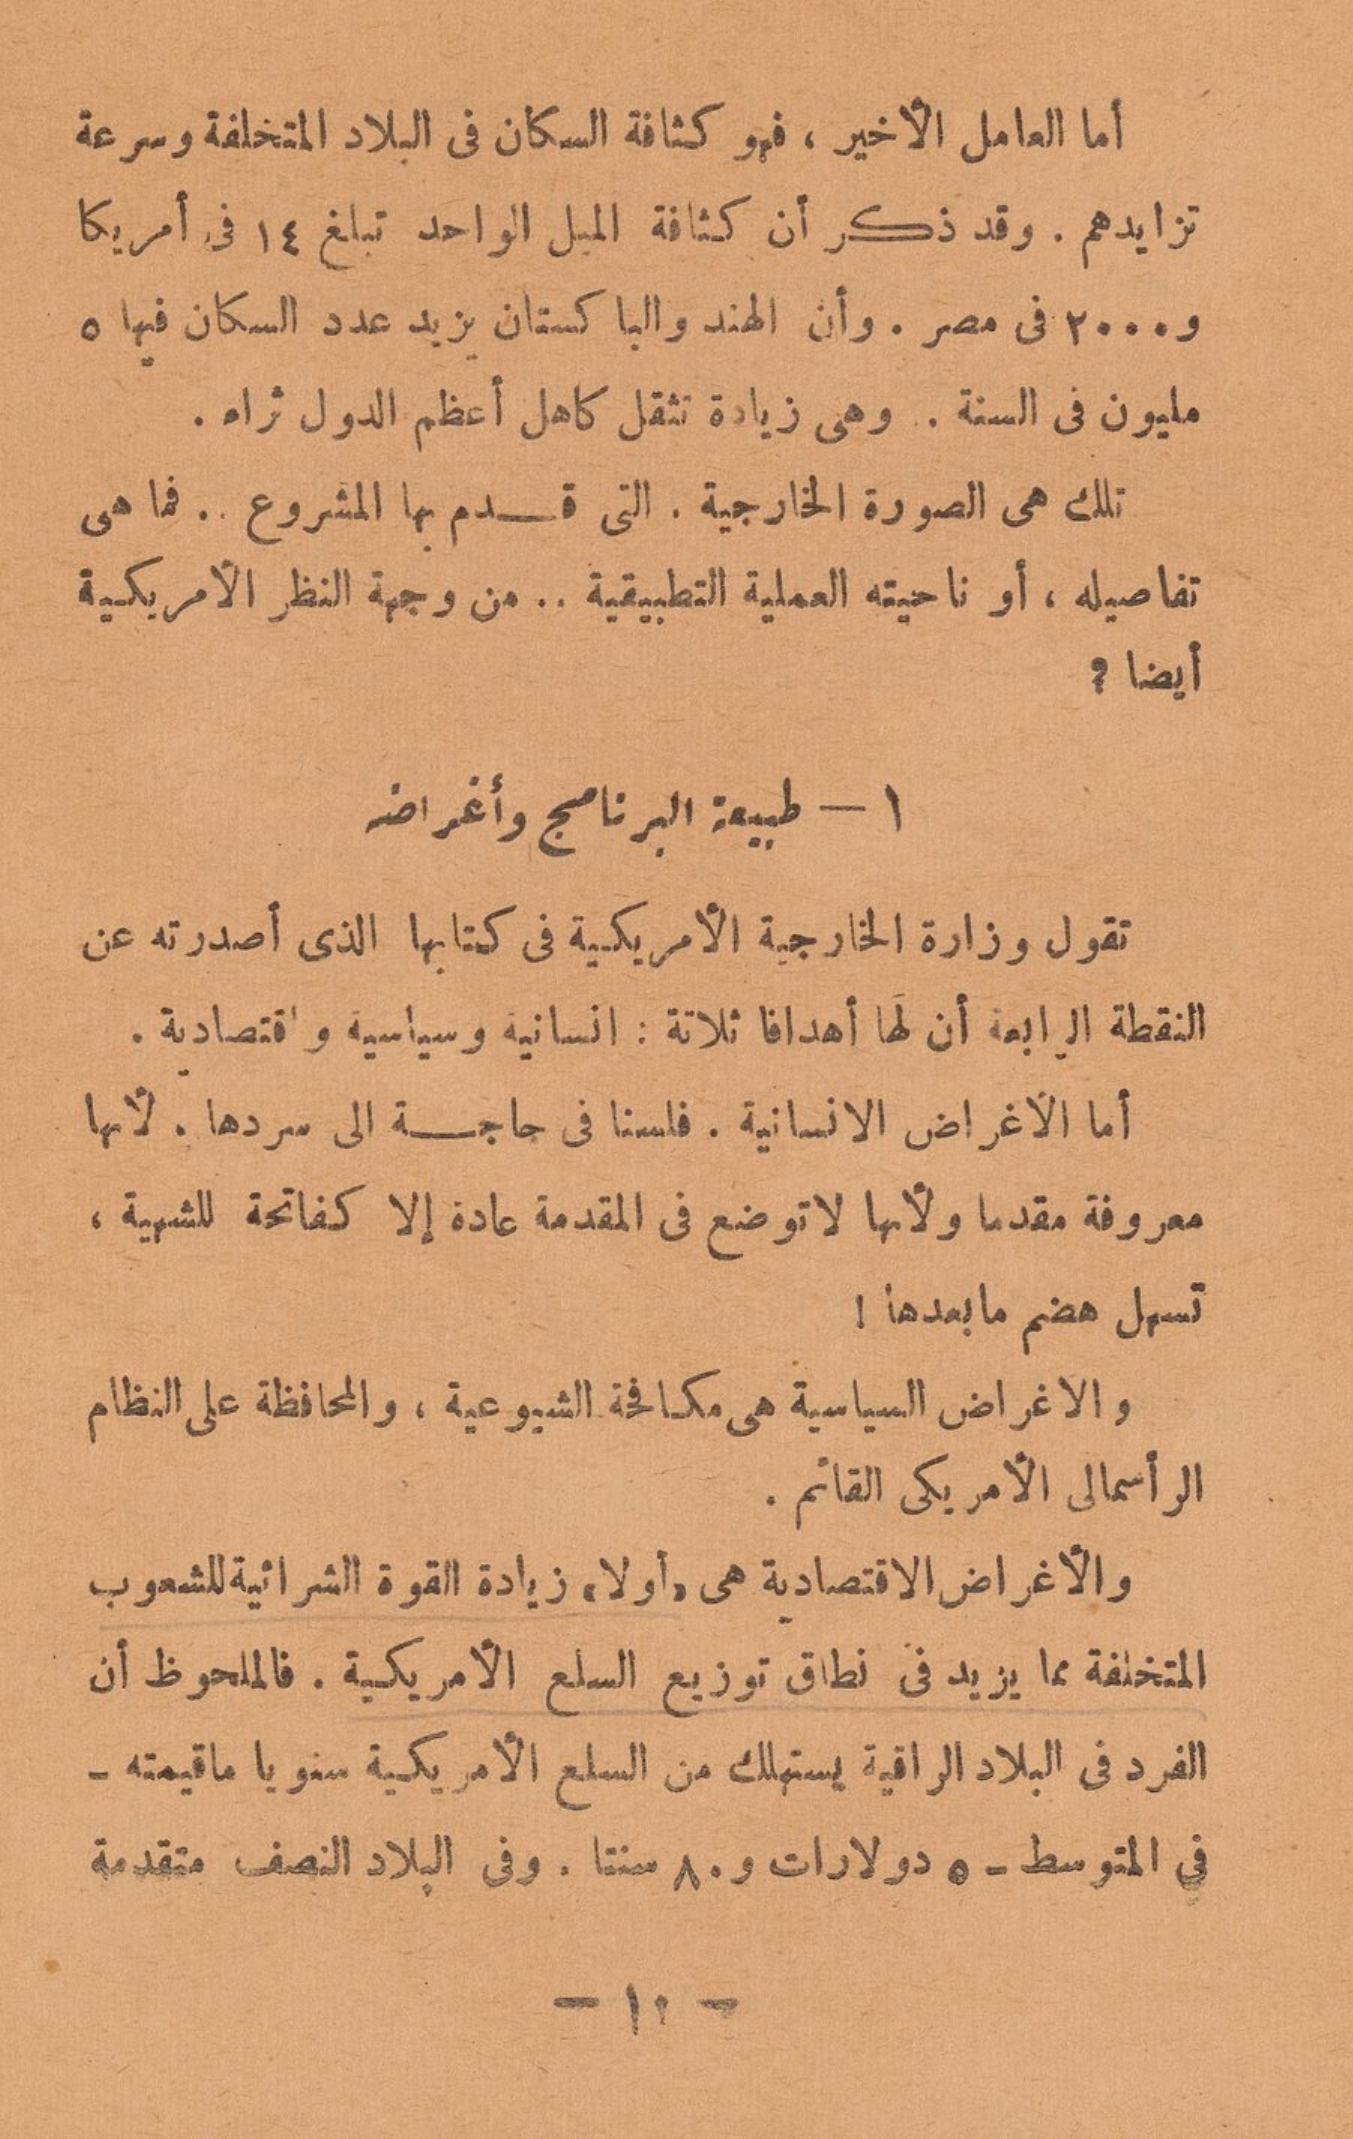 أما العامل الأخير ، فهو كثافة السكان فى البلاد المتخلفة وسرعة
تزايدهم . وقد ذكر أن كثافة الميل الواحد تبلغ ١٤ فى أمريكا
و٢٠٠٠ فى مصر . وأن الهند والباكستان يزيد عدد السكان فيها ٥
مليون فى السنة . وهى زيادة تثقل كاهل أعظم الدول ثراء .
تلك هى الصورة الخارجية . التى قــدم بها المشروع .. فما هى
تفاصيله ، أو ناحيته العملية التطبيقية .. من وجهة النظر الأمريكية
أيضا ؟
١ — طبيعة البرنامج وأغراضه
تقول وزارة الخارجية الأمريكية فى كتابها الذى أصدرته عن
النقطة الرابعة أن لها أهدافا ثلاثة : انسانية وسياسية واقتصادية .
أما الأغراض الانسانية . فلسنا فى حاجــة الى سردها . لأنها
معروفة مقدما ولأنها لا توضع فى المقدمة عادة إلا كفاتحة للشهية ،
تسهل هضم مابعدها !
والاغراض السياسية هى مكافحة الشيوعية ، والمحافظة على النظام
الرأسمالى الأمريكى القائم .
والأغراض الاقتصادية هى «أولا» زيادة القوة الشرائية للشعوب
المتخلفة مما يزيد فى نطاق توزيع السلع الأمريكية . فالملحوظ أن
الفرد فى البلاد الراقية يستهلك من السلع الأمريكية سنويا ماقيمته –
في المتوسط – ٥ دولارات و٨٠ سنتا . وفى البلاد النصف متقدمة
— ١٠ —